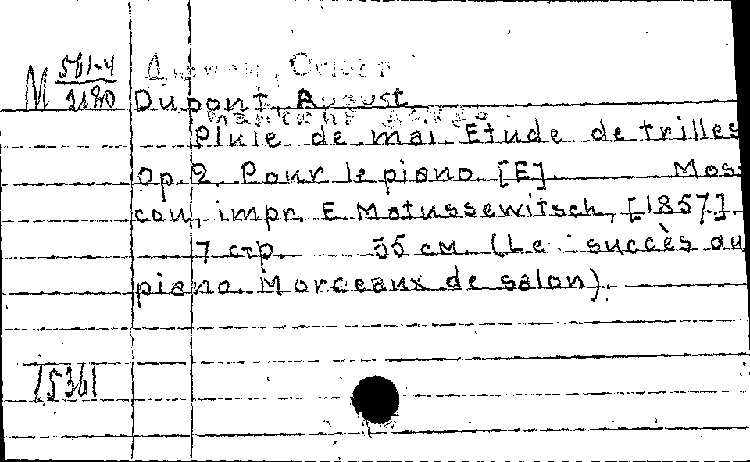 M 561-4
2180
Dupont, August
Pluie de mai. Etude de trilles
Op. 2. Pour le piano. [E] Mos-
cou, impr. E. Matussewitsch, [1857].
7 стр. 35 см. (Le succès du
piano. Morceaux de salon).
15361